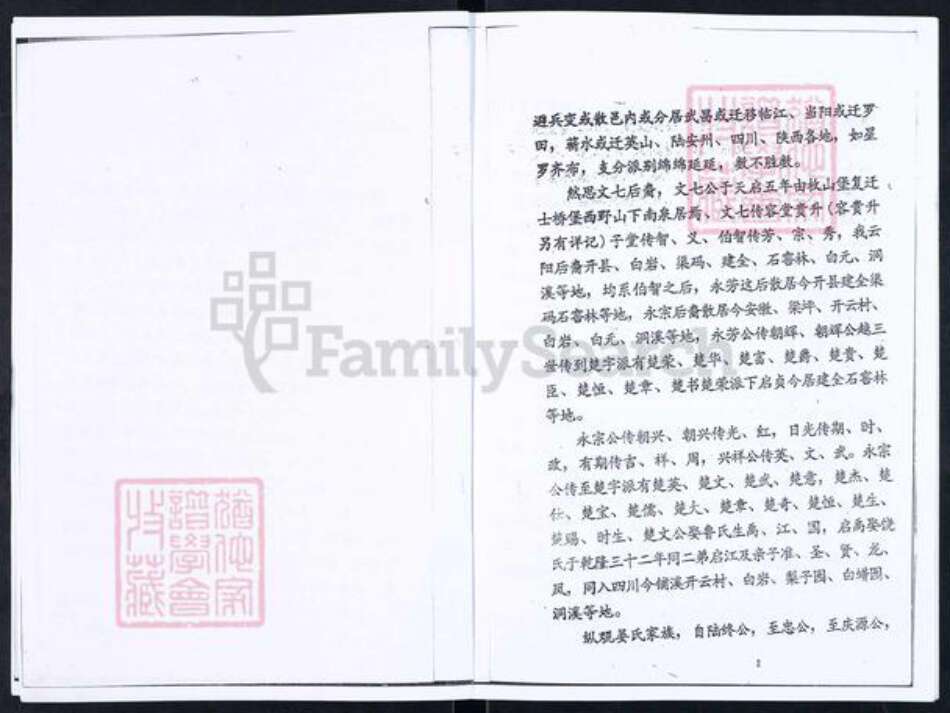 避兵变或散邑内或分居武昌或迁移临江、当阳或迁罗
田,蕲水或迁英山、陆安州、四川、陕西各地,如星
罗齐布,支分派别绵绵延延,数不胜数。
然思文七后裔,文七公于天启五年由枚山堡复迁
士桥堡西野山下南泉居焉、文七传容堂贵升(容贵升
另有详记)子堂传智、义、伯智传芳、宗、秀,我云
阳后裔开县、白岩、渠码、建全、石窖林、白元、洞
溪等地,均系伯智之后,永芳这后散居今开县建全渠
码石窖林等地,永宗后裔散居今安徽、梁坪、开云村、
白岩、白元、洞溪等地,永芳公传朝辉、朝辉公越三
世传到楚字派有楚荣、楚华、楚富、楚爵、楚贵、楚
臣、楚恒、楚章、楚书楚荣派下启贞今居建全石窖林
等地。
永宗公传朝兴、朝兴传光、红,日光传期、时、
政,有期传吉、祥、周,兴祥公传英、文、武。永宗
公传至楚字派有楚英、楚文、楚武、楚意,楚杰、楚
仕、楚宝、楚儒、楚大、楚章、楚奇、楚恒、楚生、
楚赐、时生、楚文公娶鲁氏生禹、江、国,启禹娶饶
氏于乾隆三十二年同二弟启江及亲子准、圣、贤、龙、
凤,同入四川今铺溪开云村、白岩、梨子园、白
洞溪等地。
纵观晏氏家族,自陆终公,至忠公,至庆源公,
2
FamilySearch
猶他家
譜學會
收藏